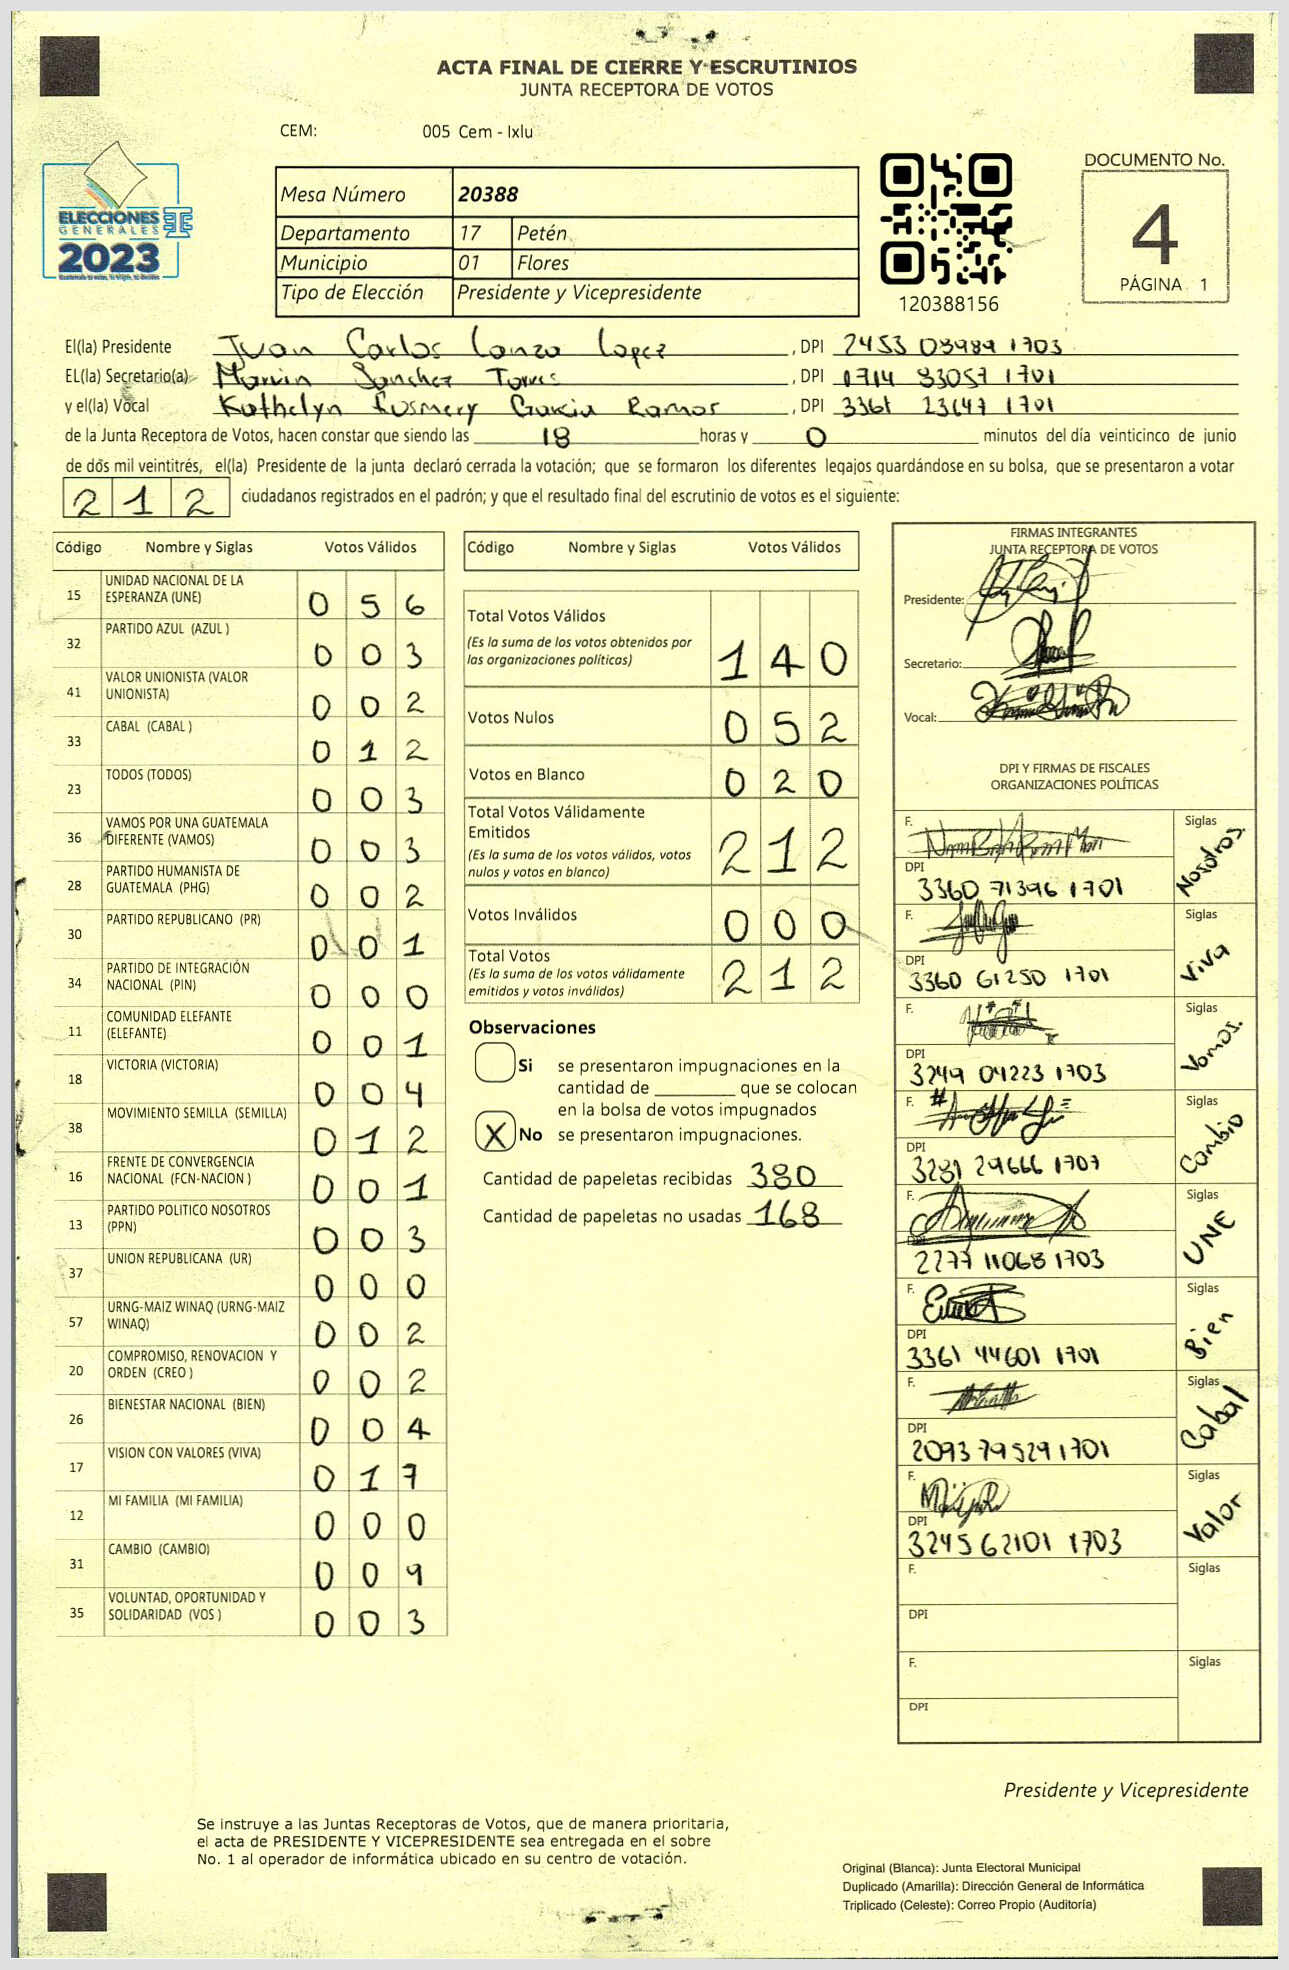 ACTA FINAL DE CIERRE Y ESCRUTINIOS
JUNTA RECEPTORA DE VOTOS
CEM: 005 Cem - Ixlu
ELECCIONES
GENERALES
2023
Mesa Número 20388
Departamento 17 Petén
Municipio 01 Flores
Tipo de Elección Presidente y Vicepresidente
120388156
DOCUMENTO No.
4
PÁGINA 1
El(la) Presidente Juan Carlos Lanza Lopez, DPI 2453 03989 1703
EL(la) Secretario(a) Marvin Sanchez Torres, DPI 1714 93057 1701
y el(la) Vocal Kathelyn Rosmery Garcia Ramos, DPI 3361 23647 1701
de la Junta Receptora de Votos, hacen constar que siendo las 18 horas y 0 minutos del día veinticinco de junio
de dós mil veintitrés, el(la) Presidente de la junta declaró cerrada la votación; que se formaron los diferentes legajos guardándose en su bolsa, que se presentaron a votar
212 ciudadanos registrados en el padrón; y que el resultado final del escrutinio de votos es el siguiente:
Código Nombre y Siglas Votos Válidos
15 UNIDAD NACIONAL DE LA ESPERANZA (UNE) 0 5 6
32 PARTIDO AZUL (AZUL ) 0 0 3
41 VALOR UNIONISTA (VALOR UNIONISTA) 0 0 2
33 CABAL (CABAL ) 0 1 2
23 TODOS (TODOS) 0 0 3
36 VAMOS POR UNA GUATEMALA DIFERENTE (VAMOS) 0 0 3
28 PARTIDO HUMANISTA DE GUATEMALA (PHG) 0 0 2
30 PARTIDO REPUBLICANO (PR) 0 0 1
34 PARTIDO DE INTEGRACIÓN NACIONAL (PIN) 0 0 0
11 COMUNIDAD ELEFANTE (ELEFANTE) 0 0 1
18 VICTORIA (VICTORIA) 0 0 4
38 MOVIMIENTO SEMILLA (SEMILLA) 0 1 2
16 FRENTE DE CONVERGENCIA NACIONAL (FCN-NACION ) 0 0 1
13 PARTIDO POLITICO NOSOTROS (PPN) 0 0 3
37 UNION REPUBLICANA (UR) 0 0 0
57 URNG-MAIZ WINAQ (URNG-MAIZ WINAQ) 0 0 2
20 COMPROMISO, RENOVACION Y ORDEN (CREO ) 0 0 2
26 BIENESTAR NACIONAL (BIEN) 0 0 4
17 VISION CON VALORES (VIVA) 0 1 7
12 MI FAMILIA (MI FAMILIA) 0 0 0
31 CAMBIO (CAMBIO) 0 0 9
35 VOLUNTAD, OPORTUNIDAD Y SOLIDARIDAD (VOS ) 0 0 3
Código Nombre y Siglas Votos Válidos
Total Votos Válidos 1 4 0
(Es la suma de los votos obtenidos por
las organizaciones políticas)
Votos Nulos 0 5 2
Votos en Blanco 0 2 0
Total Votos Válidamente
Emitidos 2 1 2
(Es la suma de los votos válidos, votos
nulos y votos en blanco)
Votos Inválidos 0 0 0
Total Votos 2 1 2
(Es la suma de los votos válidamente
emitidos y votos inválidos)
Observaciones
Si se presentaron impugnaciones en la
cantidad de ________ que se colocan
en la bolsa de votos impugnados
X No se presentaron impugnaciones.
Cantidad de papeletas recibidas 380
Cantidad de papeletas no usadas 168
FIRMAS INTEGRANTES
JUNTA RECEPTORA DE VOTOS
Presidente:
Secretario:
Vocal:
DPI Y FIRMAS DE FISCALES
ORGANIZACIONES POLÍTICAS
F. Siglas Nosotros
DPI 3360 71396 1701
F. Siglas Viva
DPI 3360 61250 1701
F. Siglas Vamos.
DPI 3249 04223 1703
F. Siglas Cambio
DPI 3281 29666 1707
F. Siglas UNE
DPI 2277 11068 1703
F. Siglas Bien
DPI 3361 44601 1701
F. Siglas Cabal
DPI 2093 79529 1701
F. Siglas Valor
DPI 3245 62101 1703
F. Siglas
DPI
F. Siglas
DPI
Presidente y Vicepresidente
Se instruye a las Juntas Receptoras de Votos, que de manera prioritaria,
el acta de PRESIDENTE Y VICEPRESIDENTE sea entregada en el sobre
No. 1 al operador de informática ubicado en su centro de votación.
Original (Blanca): Junta Electoral Municipal
Duplicado (Amarilla): Dirección General de Informática
Triplicado (Celeste): Correo Propio (Auditoría)